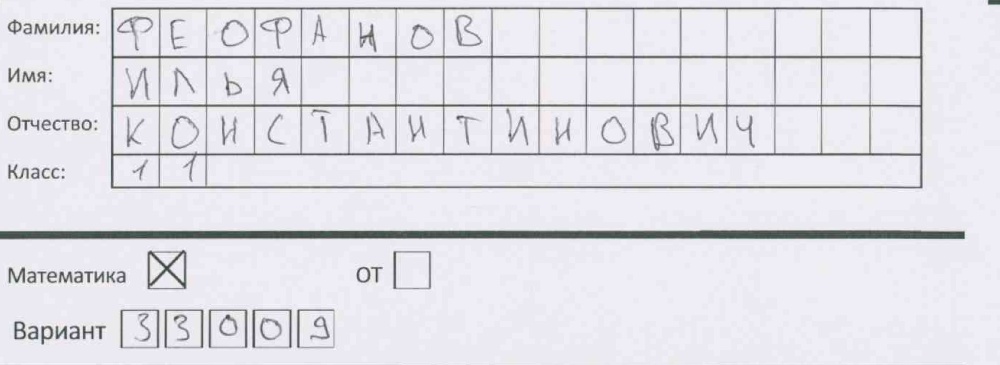 Фамилия: ФЕОФАНОВ
Имя: ИЛЬЯ
Отчество: КОНСТАНТИНОВИЧ
Класс: 11
Математика ☒ ОТ ☐
Вариант 33009